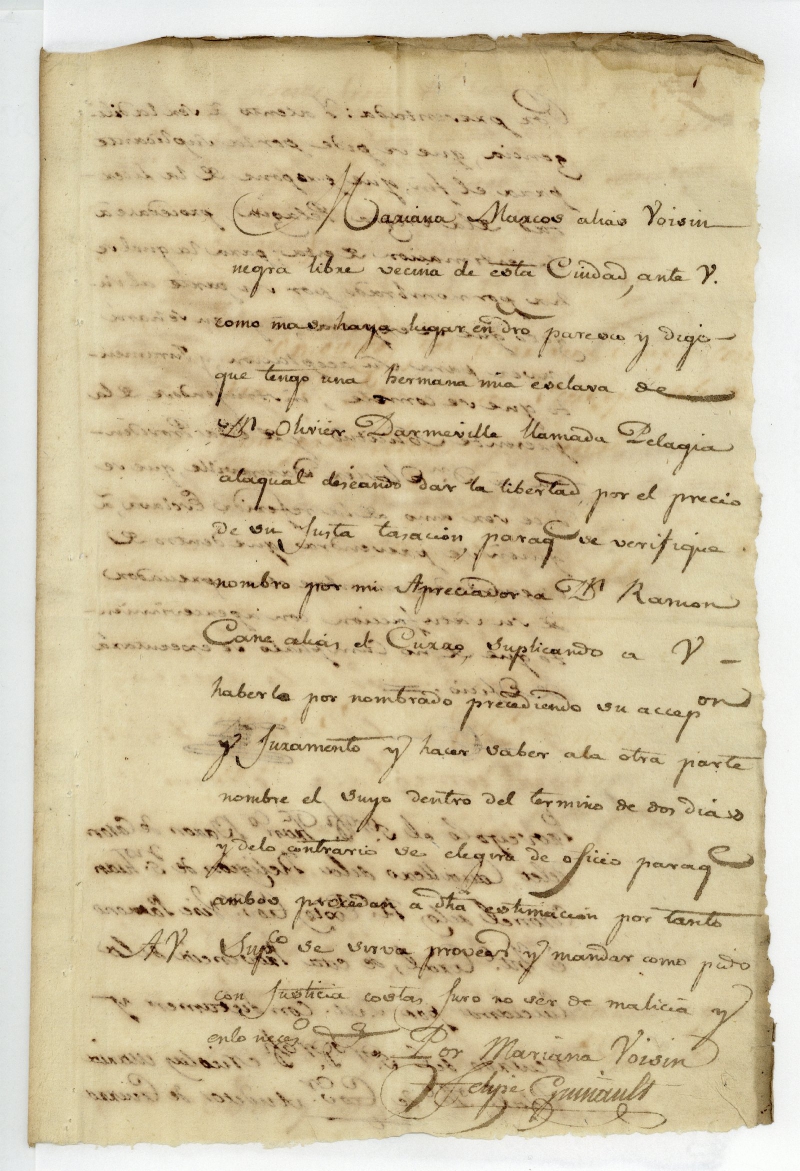 Mariana Marcos alias Voisin
negra libre vecina de esta Ciudad, ante V.
como mas haya lugar en dro paresco y digo
que tengo una hermana mia esclava de
Dn Olivier Darmeville llamada Pelagia
ala qual deseando dar la libertad por el precio
de su Justa tasacion paraq se verifique
nombro por mi Apreciador a Dn Ramon
alias el Curro, suplicando a V
haberlo por nombrado precediendo su accepon
y Juramento y hacer saber ala otra parte
nombre el suyo dentro del termino de dos dias
y delo contrario se elegira de oficio paraq
ambos procedan a dha estimacion por tanto
A V. Supco se sirva proveer y mandar como pido
con Justicia costas Juro no ser de malicia y
enlo neceso
Por Mariana Voisin
Felipe Guinault